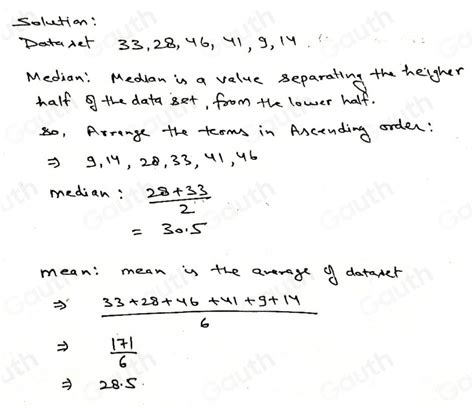 Solution:
Data set 33, 28, 46, 41, 9, 14.
Median: Median is a value separating the heigher
half of the data set, from the lower half.
so, Arrange the terms in Ascending order:
⇒ 9, 14, 28, 33, 41, 46
median: 28+33
2
= 30.5
mean: mean is the average of dataset
⇒ 33+28+46+41+9+14
6
⇒ 171
6
⇒ 28.5.
Gauth